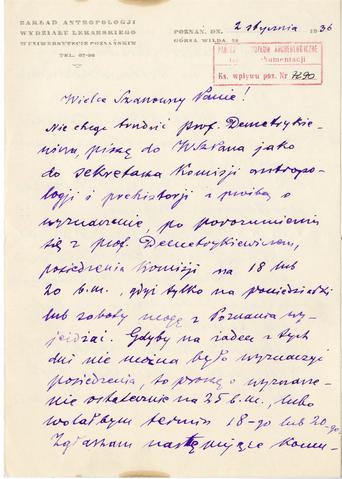 ZAKŁAD ANTROPOLOGJI
WYDZIAŁU LEKARSKIEGO
W UNIWERSYTECIE POZNAŃSKIM
TEL. 67-96
POZNAŃ, DN. 2 stycznia 1936
GÓRNA WILDA
ARCHEOLOGICZNE
Dokumentacji
Ks. wpływu poz. Nr 7690
Wielce Szanowny Panie!
Nie chcąc trudzić prof. Demetrykie-
wicza, piszę do WSzPana jako
do sekretarza Komisji antropo-
logji i prehistorji z prośbą o
wyznaczenie, po porozumieniu
się z prof. Demetrykiewiczem,
posiedzenia Komisji na 18 lub
20 b.m., gdyż tylko na poniedziałki
lub soboty mogę z Poznania wy-
jeżdżać. Gdyby na żaden z tych
dni nie można było wyznaczyć
posiedzenia, to proszę o wyznacze-
nie ostatecznie na 25 b.m., lubo
wolałbym termin 18-go lub 20-go.
Zgłaszam następujące komu-